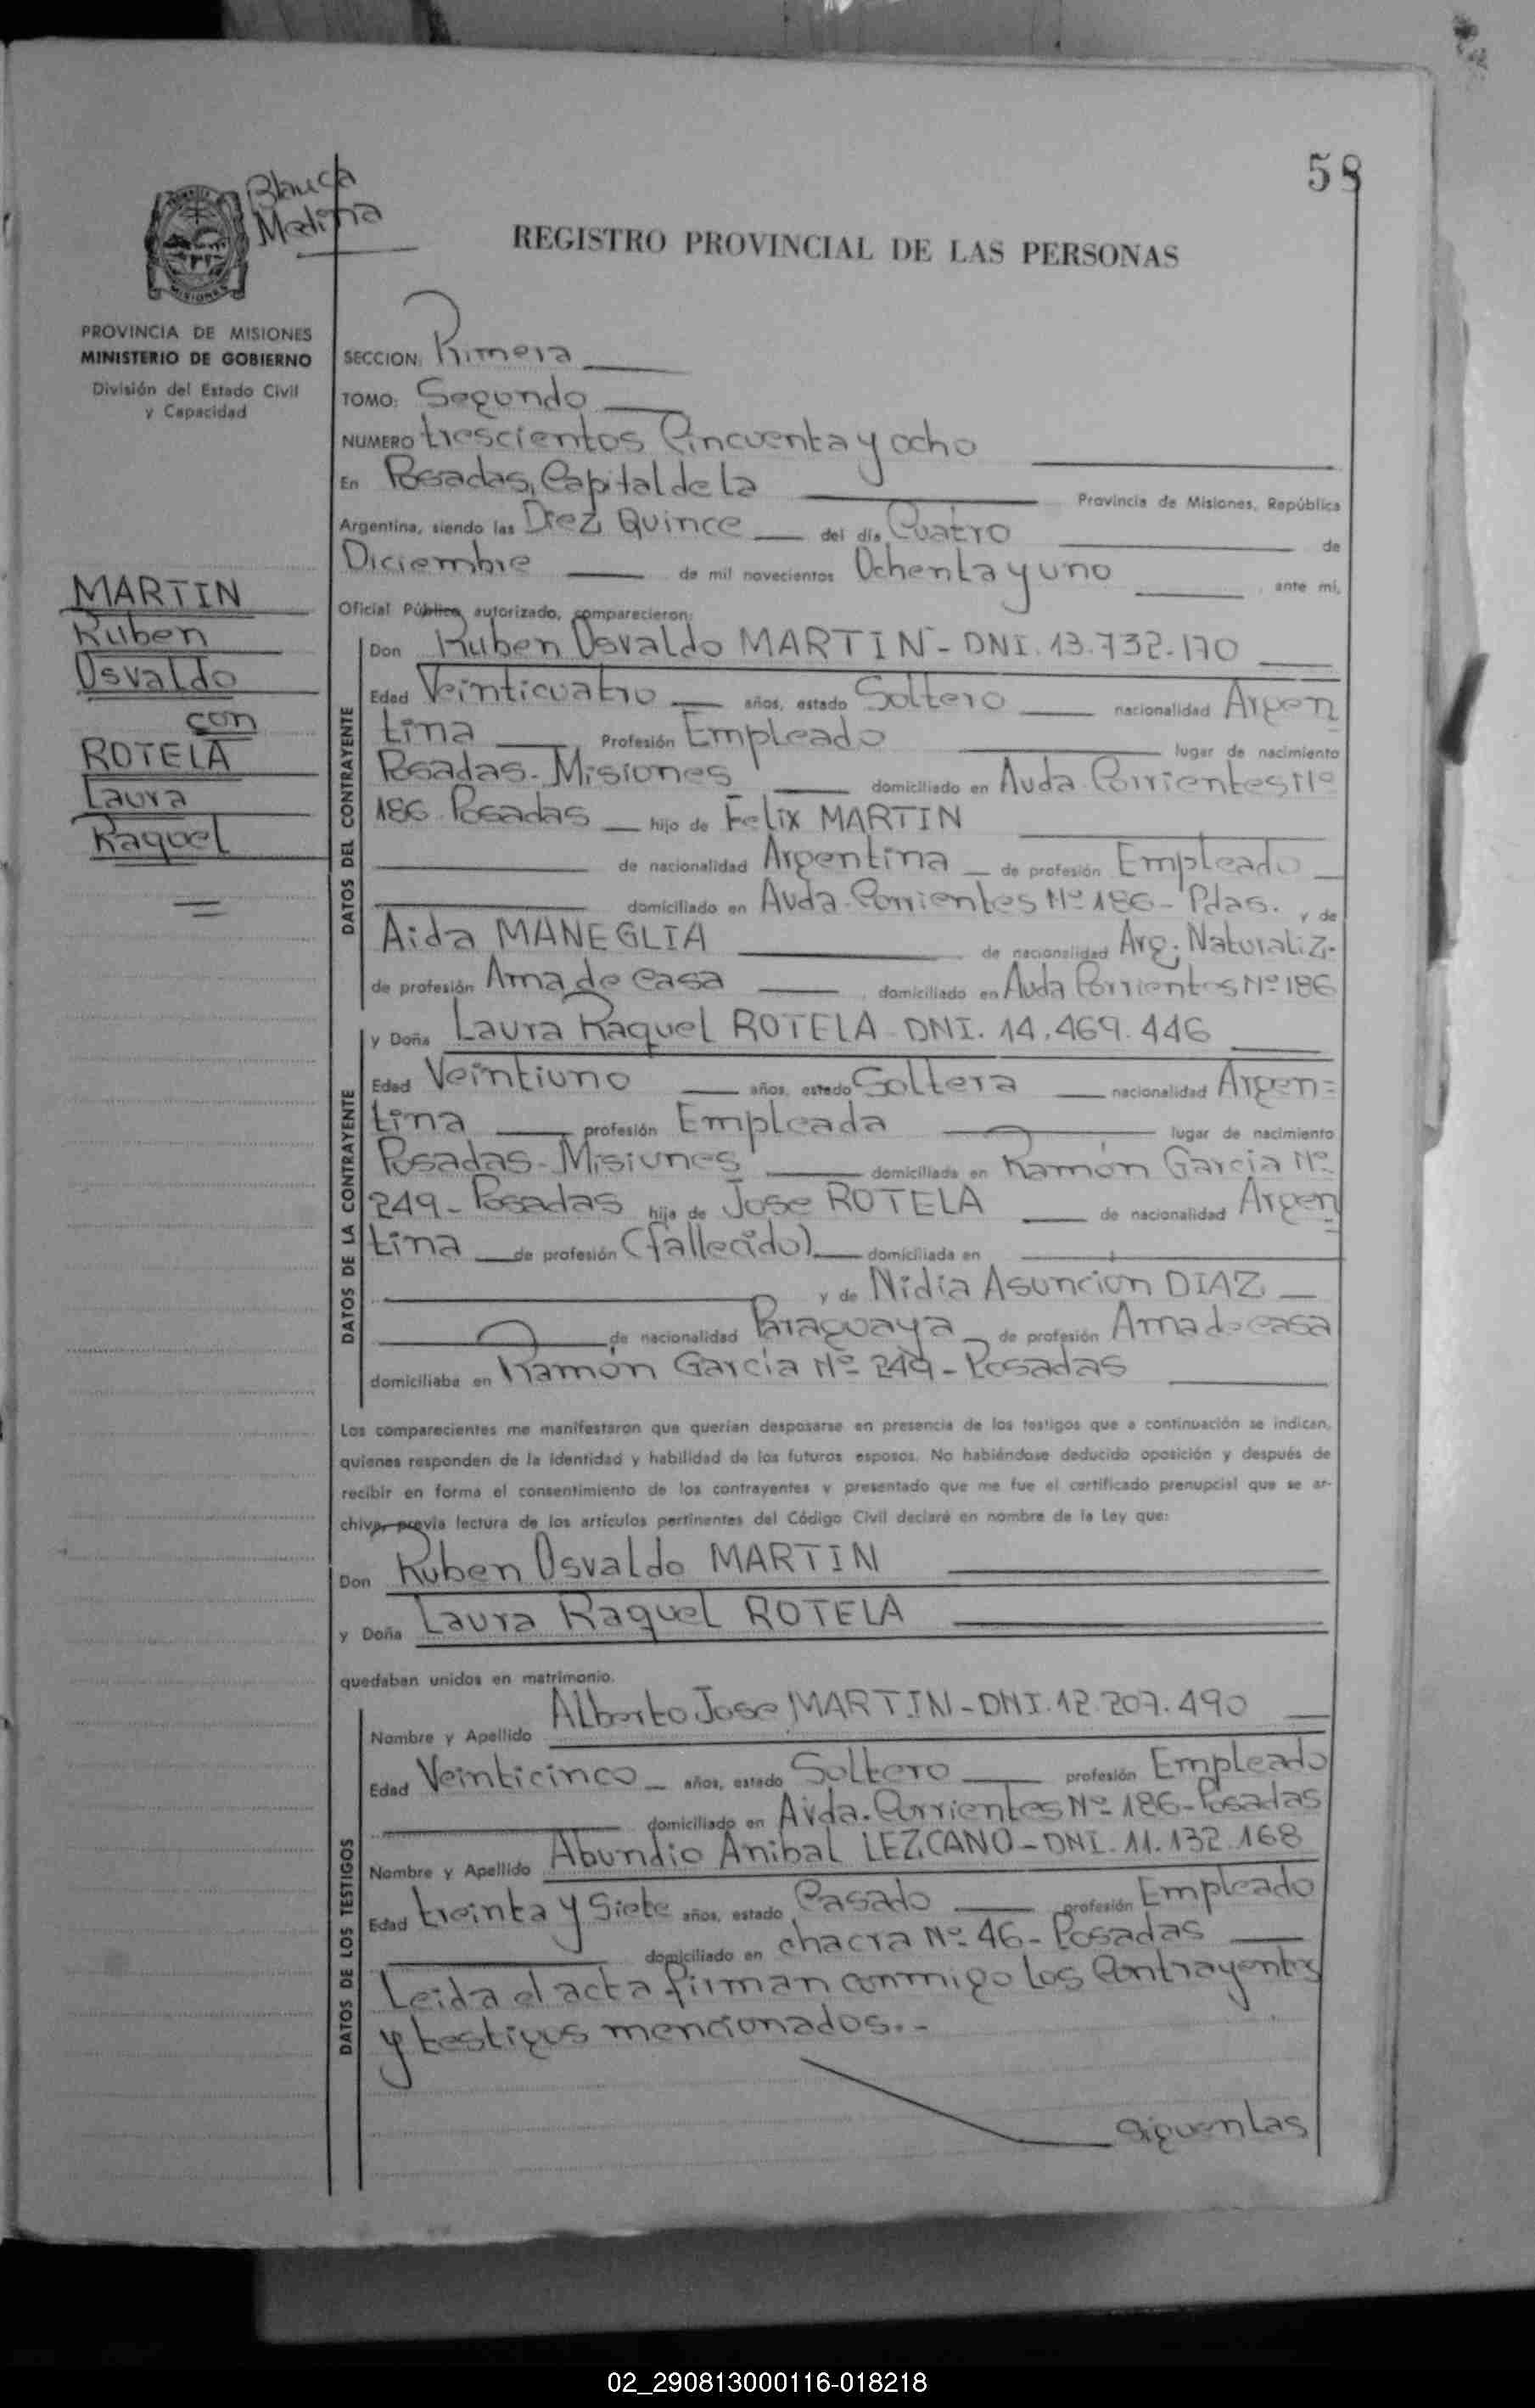 58
Blanca
Medina
REGISTRO PROVINCIAL DE LAS PERSONAS
MISIONES
PROVINCIA DE MISIONES
MINISTERIO DE GOBIERNO
División del Estado Civil
y Capacidad
SECCION: Primera
TOMO: Segundo
NUMERO trescientos Cincuenta y ocho
En Posadas, Capital de la Provincia de Misiones, República
Argentina, siendo las Diez Quince del día Cuatro de
Diciembre de mil novecientos Ochenta y uno ante mi,
Oficial Público autorizado, comparecieron:
MARTIN
Ruben
Osvaldo
con
ROTELA
Laura
Raquel
DATOS DEL CONTRAYENTE
Don Ruben Osvaldo MARTIN - DNI. 13.732.170
Edad Veinticuatro años, estado Soltero nacionalidad Argen
tina Profesión Empleado lugar de nacimiento
Posadas - Misiones domiciliado en Avda. Corrientes Nº
186 Posadas hijo de Felix MARTIN
de nacionalidad Argentina de profesión Empleado
domiciliado en Avda. Corrientes Nº 186 - Pdas. y de
Aida MANEGLIA de nacionalidad Arg. Naturaliz.
de profesión Ama de Casa domiciliado en Avda Corrientes Nº 186
DATOS DE LA CONTRAYENTE
y Doña Laura Raquel ROTELA - DNI. 14.469.446
Edad Veintiuno años, estado Soltera nacionalidad Argen=
tina profesión Empleada lugar de nacimiento
Posadas - Misiones domiciliada en Ramón García Nº
249 - Posadas hija de Jose ROTELA de nacionalidad Argen
tina de profesión (fallecido) domiciliada en
y de Nidia Asuncion DIAZ
de nacionalidad Paraguaya de profesión Ama de casa
domiciliaba en Ramón García Nº 249 - Posadas
Los comparecientes me manifestaron que querían desposarse en presencia de los testigos que a continuación se indican,
quienes responden de la identidad y habilidad de los futuros esposos. No habiéndose deducido oposición y después de
recibir en forma el consentimiento de los contrayentes y presentado que me fue el certificado prenupcial que se ar-
chiva, previa lectura de los artículos pertinentes del Código Civil declaré en nombre de la Ley que:
Don Ruben Osvaldo MARTIN
y Doña Laura Raquel ROTELA
quedaban unidos en matrimonio.
DATOS DE LOS TESTIGOS
Nombre y Apellido Alberto Jose MARTIN - DNI. 12.207.490
Edad Veinticinco años, estado Soltero profesión Empleado
domiciliado en Avda. Corrientes Nº 186 - Posadas
Nombre y Apellido Abundio Anibal LEZCANO - DNI. 11.132.168
Edad treinta y Siete años, estado Casado profesión Empleado
domiciliado en chacra Nº 46 - Posadas
Leida el acta firman conmigo los Contrayentes
y testigos mencionados. -
siguen las
02_290813000116-018218